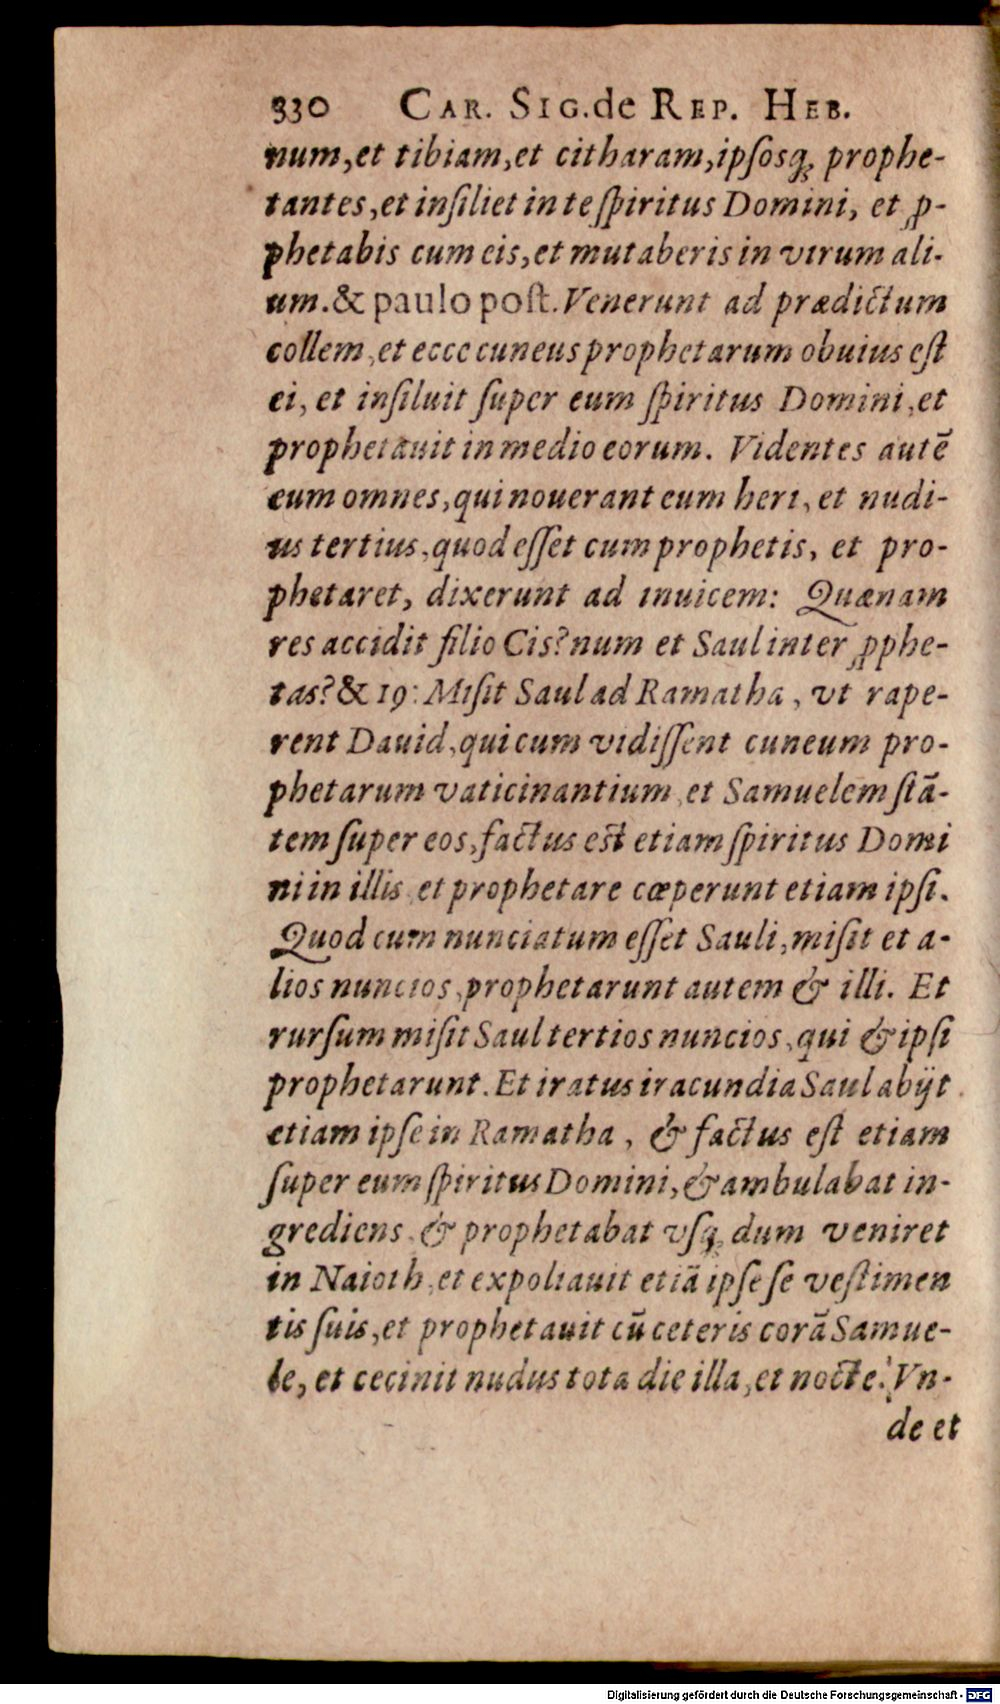 330 CAR. SIG. de REP. HEB.
num, et tibiam, et citharam, ipſosq; prophe-
tantes, et inſiliet in te ſpiritus Domini, et ꝓ-
phetabis cum eis, et mutaberis in virum ali-
um. & paulo poſt. Venerunt ad prædictum
collem, et ecce cuneus prophetarum obuius eſt
ei, et inſiluit ſuper eum ſpiritus Domini, et
prophetauit in medio eorum. Videntes autē
eum omnes, qui nouerant eum heri, et nudi-
us tertius, quod eſſet cum prophetis, et pro-
phetaret, dixerunt ad inuicem: Quænam
res accidit filio Cis? num et Saul inter ꝓphe-
tas? & 19: Miſit Saul ad Ramatha, vt rape-
rent Dauid, qui cum vidiſſent cuneum pro-
phetarum vaticinantium, et Samuelem ſtā-
tem ſuper eos, factus eſt etiam ſpiritus Domi
ni in illis, et prophetare cœperunt etiam ipſi.
Quod cum nunciatum eſſet Sauli, miſit et a-
lios nuncios, prophetarunt autem & illi. Et
rurſum miſit Saul tertios nuncios, qui & ipſi
prophetarunt. Et iratus iracundia Saul abijt
etiam ipſe in Ramatha, & factus eſt etiam
ſuper eum ſpiritus Domini, & ambulabat in-
grediens, & prophetabat vſq; dum veniret
in Naioth, et expoliauit etiā ipſe ſe veſtimen
tis ſuis, et prophetauit cū ceteris corā Samue-
le, et cecinit nudus tota die illa, et nocte. Vn-
de et
Digitalisierung gefördert durch die Deutsche Forschungsgemeinschaft - DFG